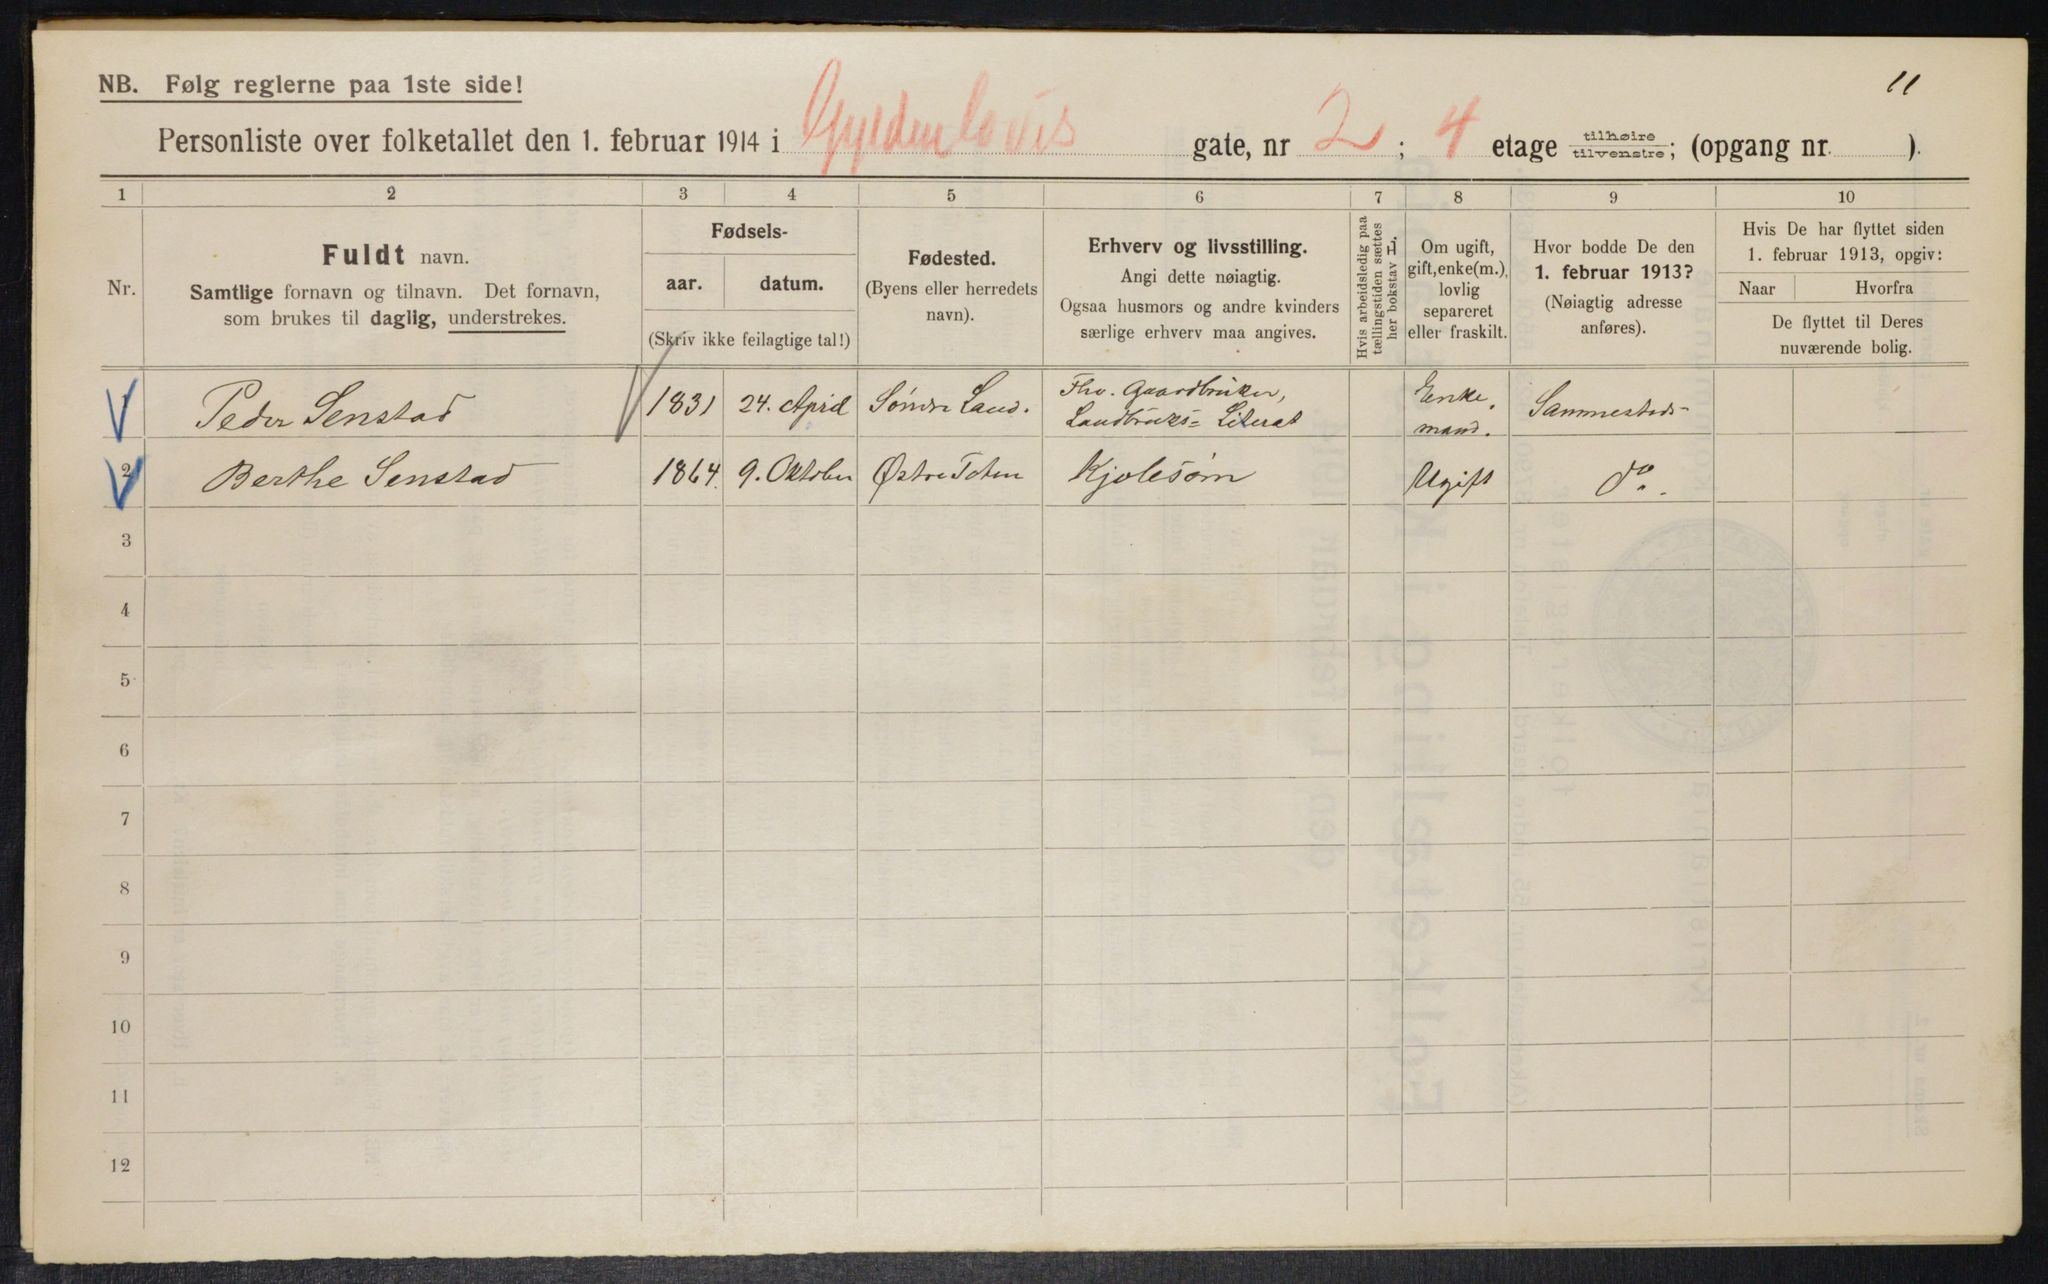 11
NB. Følg reglerne paa 1ste side!
Personliste over folketallet den 1. februar 1914 i Gyldenløves gate, nr 2 ; 4 etage tilhøire tilvenstre; (opgang nr. ).
1 2 3 4 5 6 7 8 9 10
Nr.
Fuldt navn.
Samtlige fornavn og tilnavn. Det fornavn,
som brukes til daglig, understrekes.
Fødsels-
aar. datum.
(Skriv ikke feilagtige tal!)
Fødested.
(Byens eller herredets
navn).
Erhverv og livsstilling.
Angi dette nøiagtig.
Ogsaa husmors og andre kvinders
særlige erhverv maa angives.
Hvis arbeidsledig paa
tællingstiden sættes
her bokstav L.
Om ugift,
gift, enke(m.),
lovlig
separeret
eller fraskilt.
Hvor bodde De den
1. februar 1913?
(Nøiagtig adresse
anføres).
Hvis De har flyttet siden
1. februar 1913, opgiv:
Naar Hvorfra
De flyttet til Deres
nuværende bolig.
1 Peder Senstad 1831 24. April Søndre Land. Fhv. Gaardbruker, Enke- Sammesteds-
Landbruks= Literat mand.
2 Berthe Senstad 1864. 9. Oktober Østre Toten Kjolesøm Ugift do.
3
4
5
6
7
8
9
10
11
12